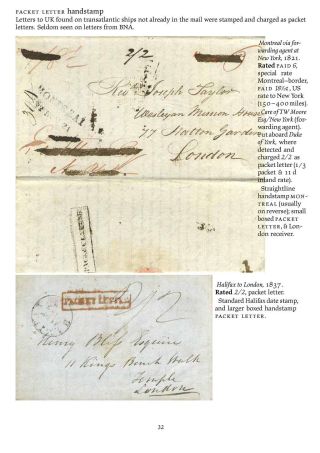 PACKET LETTER handstamp
Letters to UK found on transatlantic ships not already in the mail were stamped and charged as packet
letters. Seldom seen on letters from BNA.
Montreal via for-
warding agent at
New York, 1821.
Rated PAID 6,
special rate
Montreal–border,
PAID 18¾, US
rate to New York
(150–400 miles).
Care of TW Moore
Esq/New York (for-
warding agent).
Put aboard Duke
of York, where
detected and
charged 2/2 as
packet letter (1/3
packet & 11 d
inland rate).
Straightline
handstamp MON-
TREAL (usually
on reverse); small
boxed PACKET
LETTER, & Lon-
don receiver.
2/2
Revd Joseph Taylor
Wesleyan Mission House
77 Hatton Garden
London
MONTREAL
PACKET LETTER
Halifax to London, 1837.
Rated 2/2, packet letter.
Standard Halifax date stamp,
and larger boxed handstamp
PACKET LETTER.
PACKET LETTER
2/2
Henry Bliss Esquire
11 Kings Bench Walk
Temple
London
32